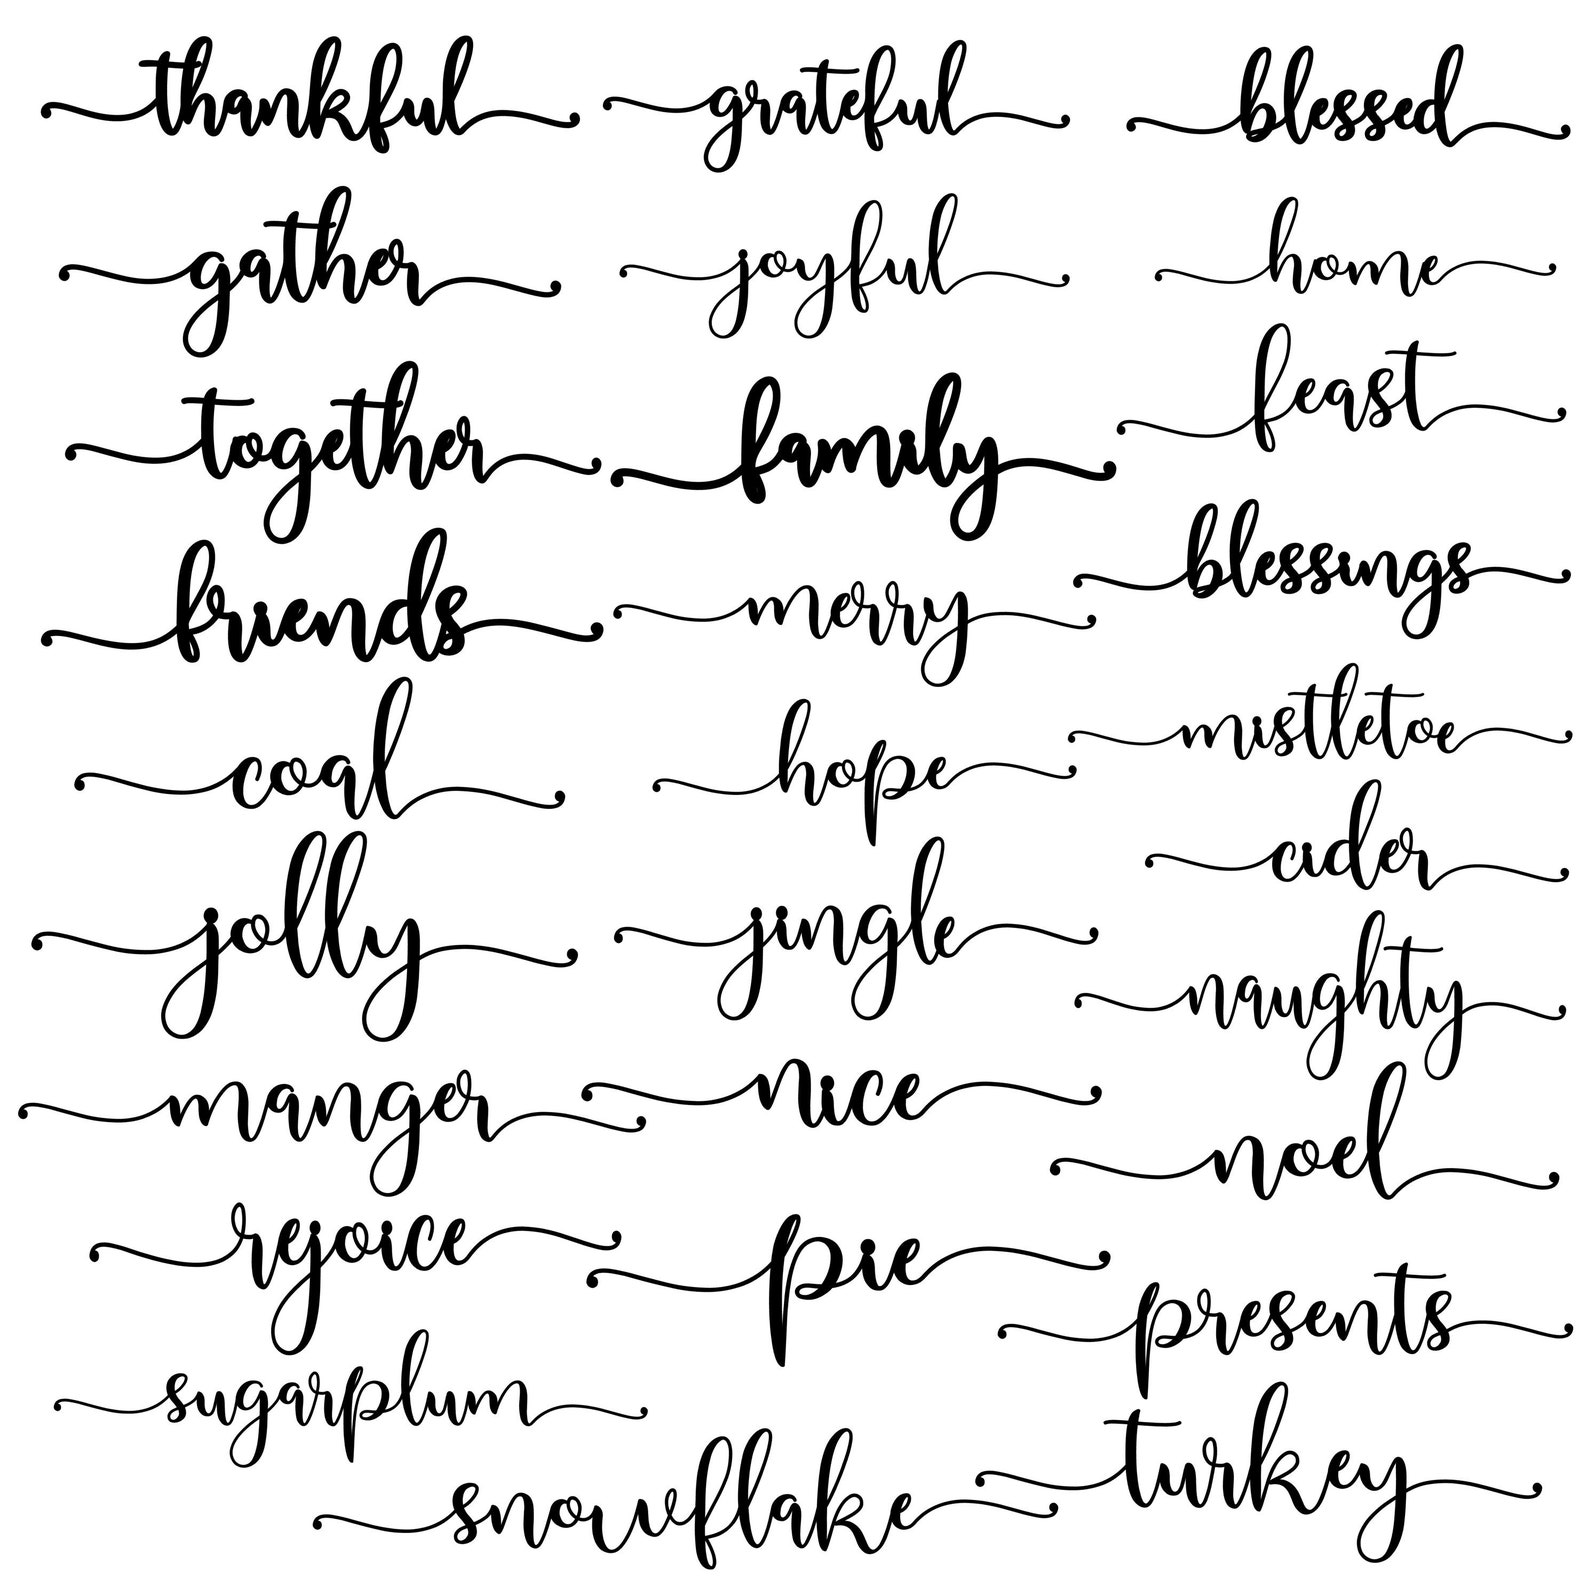 thankful
grateful
blessed
gather
joyful
home
together
family
feast
friends
merry
blessings
coal
hope
mistletoe
jolly
jingle
cider
manger
nice
naughty
rejoice
pie
noel
sugarplum
snowflake
presents
turkey